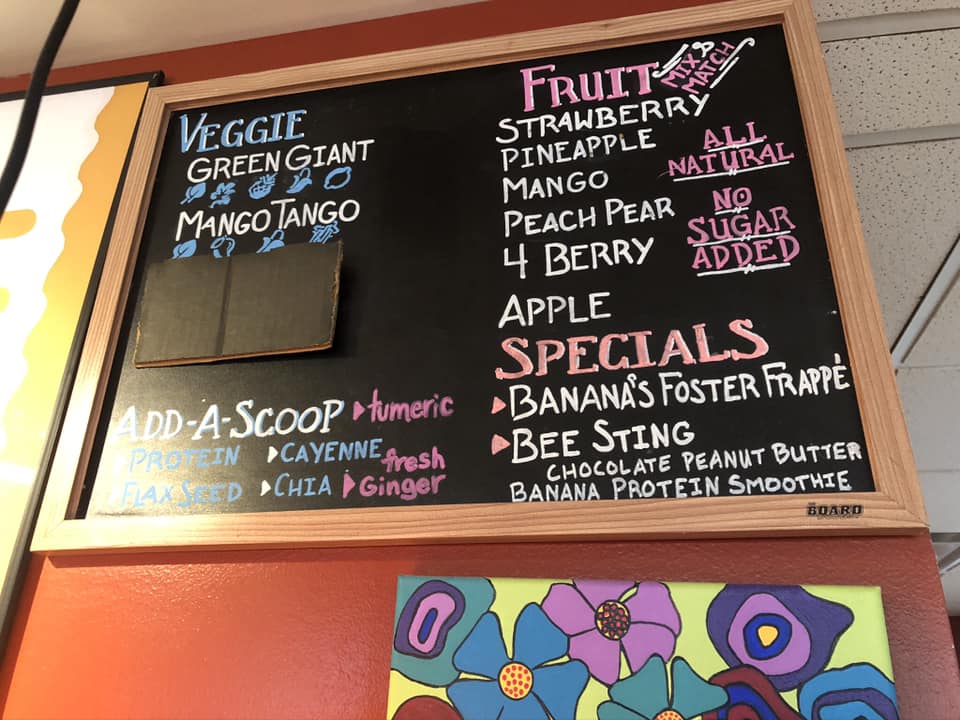 VEGGIE
GREEN GIANT
MANGO TANGO
ADD-A-SCOOP
tumeric
PROTEIN
CAYENNE
FLAX SEED
CHIA
fresh
Ginger
FRUIT
MIX &
MATCH
STRAWBERRY
PINEAPPLE
MANGO
PEACH PEAR
4 BERRY
APPLE
ALL
NATURAL
NO
SUGAR
ADDED
SPECIALS
BANANA'S FOSTER FRAPPÉ
BEE STING
CHOCOLATE PEANUT BUTTER
BANANA PROTEIN SMOOTHIE
BOARD